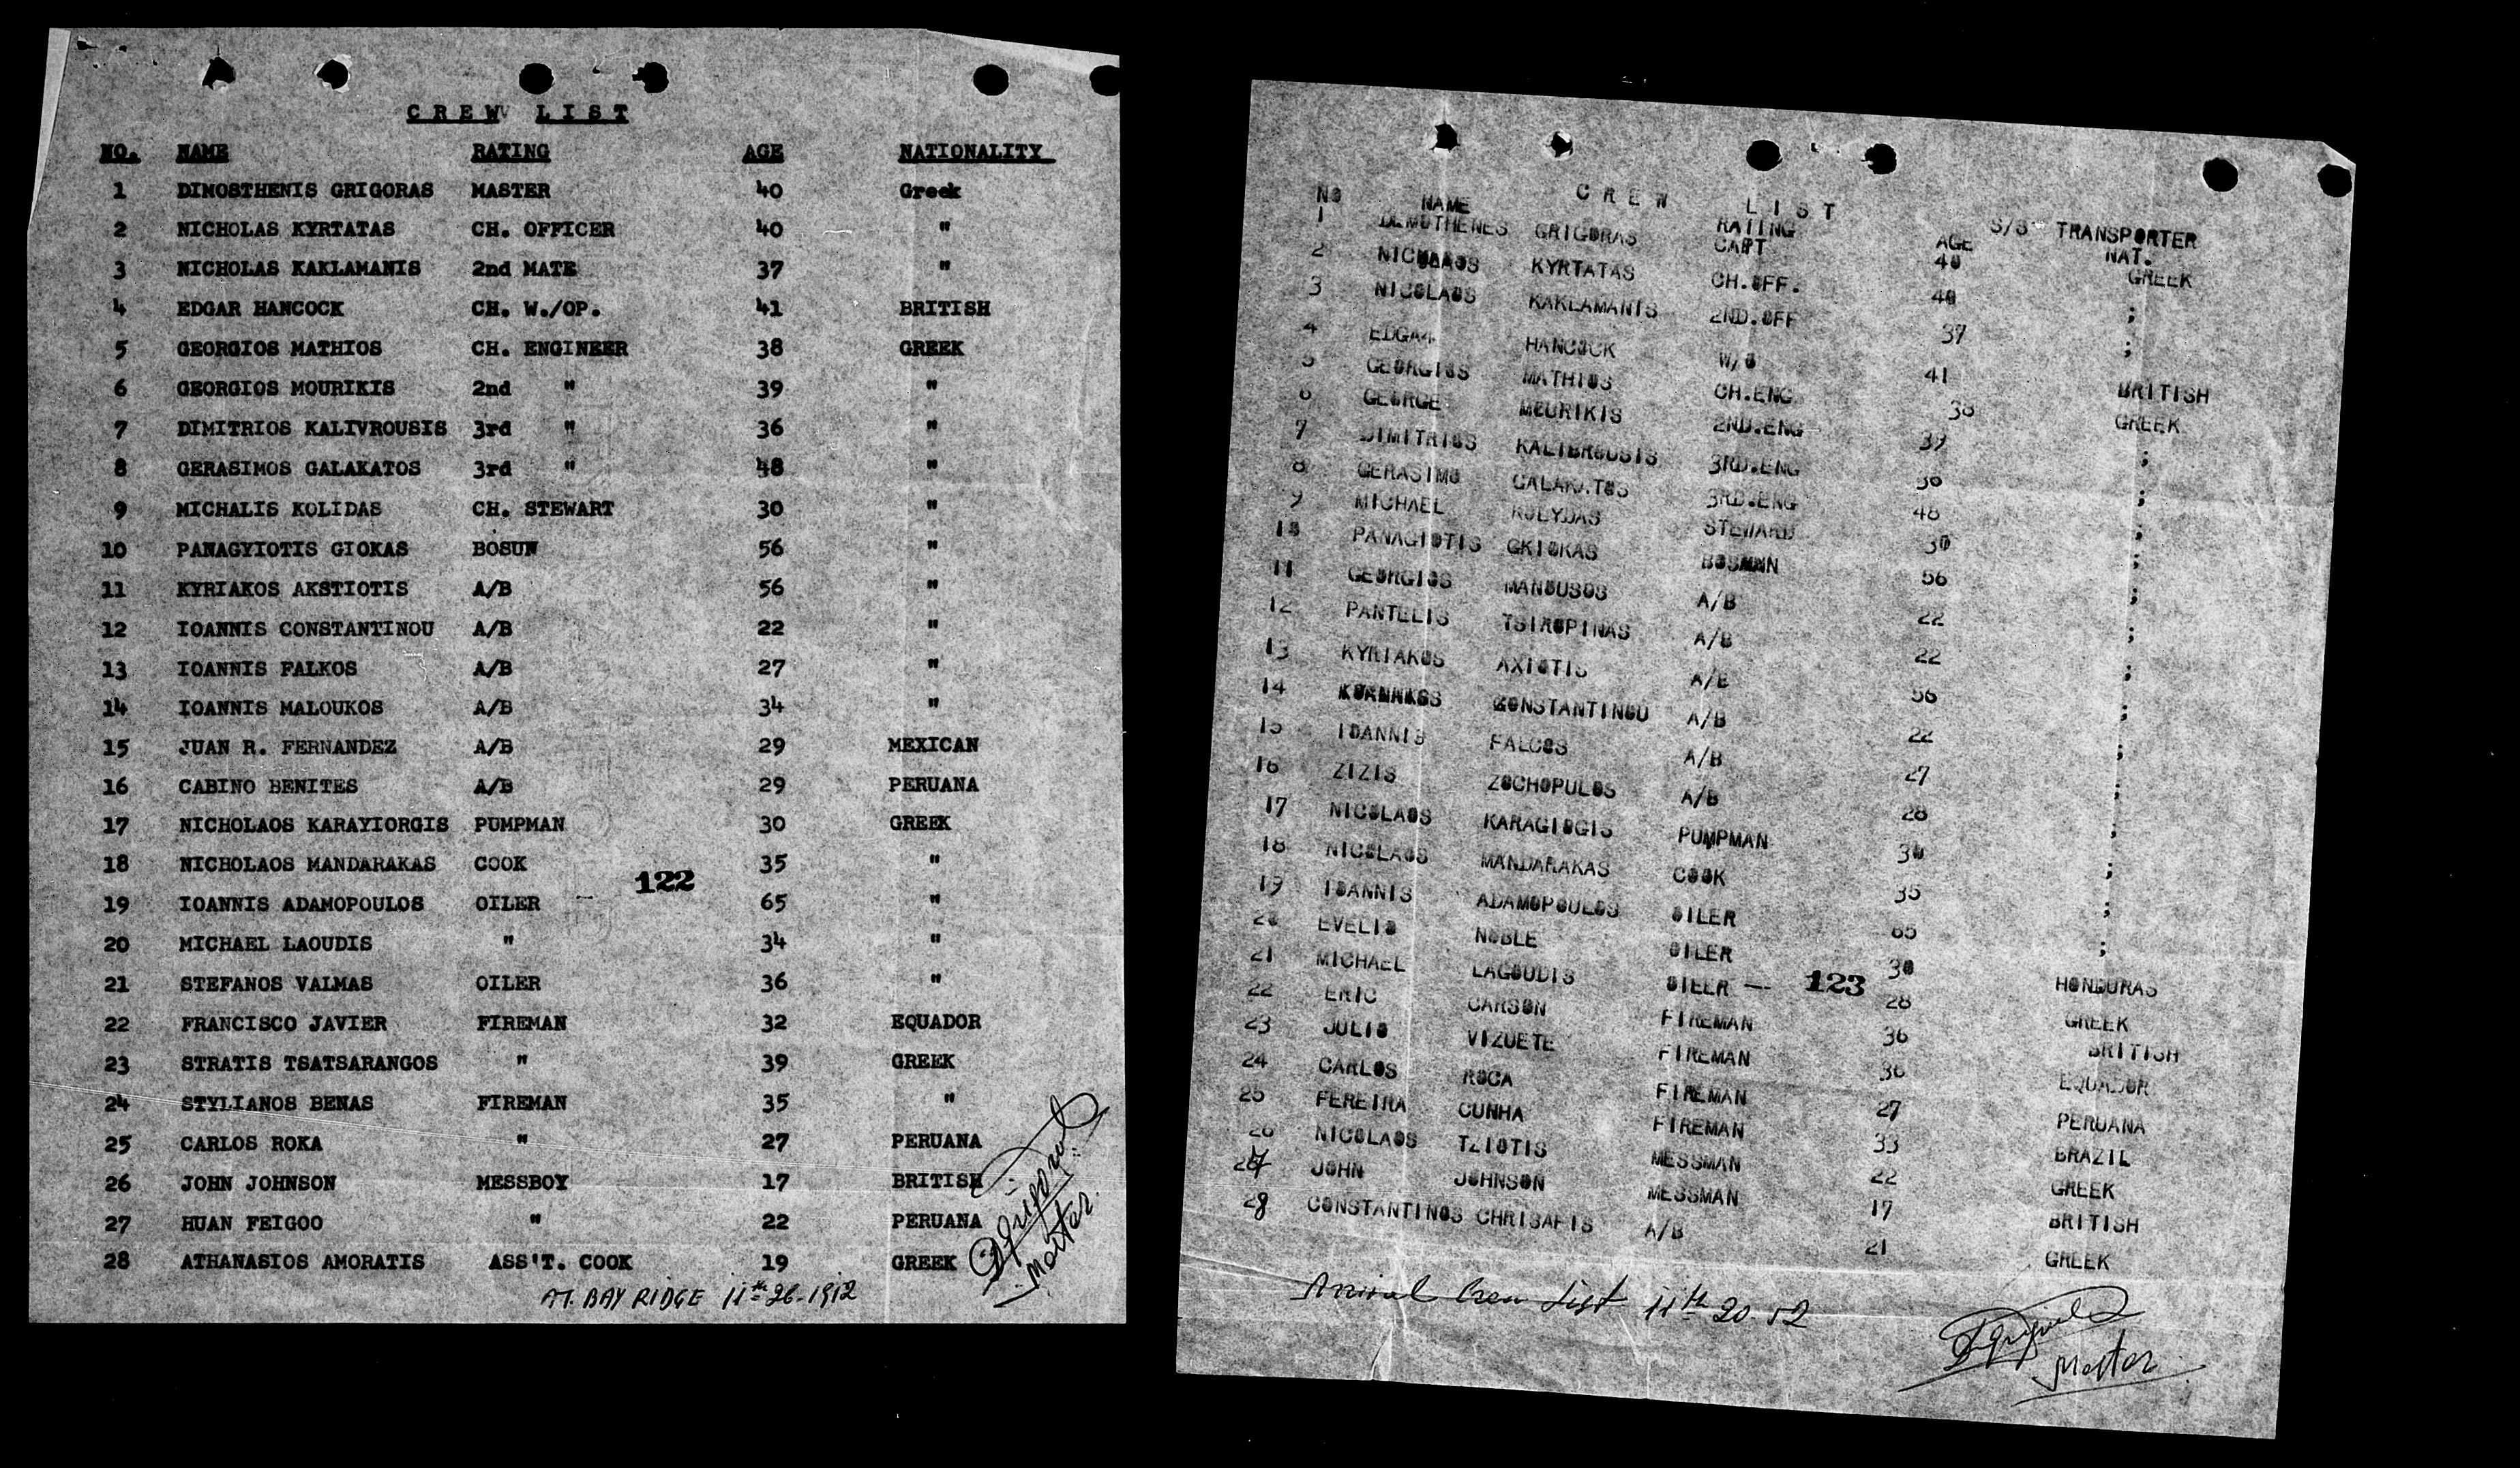 CREW LIST
NO. NAME RATING AGE NATIONALITY
1 DIMOSTHENIS GRIGORAS MASTER 40 Greek
2 NICHOLAS KYRTATAS CH. OFFICER 40 "
3 NICHOLAS KAKLAMANIS 2nd MATE 37 "
4 EDGAR HANCOCK CH. W./OP. 41 BRITISH
5 GEORGIOS MATHIOS CH. ENGINEER 38 GREEK
6 GEORGIOS MOURIKIS 2nd " 39 "
7 DIMITRIOS KALIVROUSIS 3rd " 36 "
8 GERASIMOS GALAKATOS 3rd " 48 "
9 MICHALIS KOLIDAS CH. STEWART 30 "
10 PANAGYIOTIS GIOKAS BOSUN 56 "
11 KYRIAKOS AKSTIOTIS A/B 56 "
12 IOANNIS CONSTANTINOU A/B 22 "
13 IOANNIS FALKOS A/B 27 "
14 IOANNIS MALOUKOS A/B 34 "
15 JUAN R. FERNANDEZ A/B 29 MEXICAN
16 CABINO BENITES A/B 29 PERUANA
17 NICHOLAOS KARAYIORGIS PUMPMAN 30 GREEK
18 NICHOLAOS MANDARAKAS COOK 35 "
122
19 IOANNIS ADAMOPOULOS OILER 65 "
20 MICHAEL LAOUDIS " 34 "
21 STEFANOS VALMAS OILER 36 "
22 FRANCISCO JAVIER FIREMAN 32 EQUADOR
23 STRATIS TSATSARANGOS " 39 GREEK
24 STYLIANOS BENAS FIREMAN 35 "
25 CARLOS ROKA " 27 PERUANA
26 JOHN JOHNSON MESSBOY 17 BRITISH
27 HUAN FEIGOO " 22 PERUANA
28 ATHANASIOS AMORATIS ASS'T. COOK 19 GREEK
AT. BAY RIDGE 11th 26-1912
Master
CREW LIST S/S TRANSPORTER
NO NAME RATING AGE NAT.
1 DEMOTHENES GRIGORAS CAPT 40 GREEK
2 NICOLAOS KYRTATAS CH.OFF. 40 ;
3 NICOLAOS KAKLAMANIS 2ND.OFF 37 ;
4 EDGA4 HANCOCK W/O 41 BRITISH
5 GEORGIOS MATHIOS CH.ENG 38 GREEK
6 GEORGE MOURIKIS 2ND.ENG 39 ;
7 DIMITRIOS KALIBROUSIS 3RD.ENG 36 ;
8 GERASIMO GALAKATOS 3RD.ENG 48 ;
9 MICHAEL KOLYDAS STEWARD 30 ;
10 PANAGIOTIS GKIOKAS 56 ;
11 GEORGIOS MANOUSOS A/B 22 ;
12 PANTELIS TSIROPINAS A/B 22 ;
13 KYRIAKOS AXIOTIS A/B 56 ;
14 KONSTANTINOU A/B 22 ;
15 IOANNIS FALCOS A/B 27 ;
16 ZIZIS ZOCHOPULOS A/B 28 ;
17 NICOLAOS KARAGIOGIS PUMPMAN 30 ;
18 NICOLAOS MANDARAKAS COOK 35 ;
19 IOANNIS ADAMOPOULOS OILER 65 ;
20 EVELIO NOBLE OILER 30 HONDURAS
21 MICHAEL LAGOUDIS OILER — 123 28 GREEK
22 ERIC CARSON FIREMAN 36 BRITISH
23 JULIO VIZUETE FIREMAN 36 EQUADOR
24 CARLOS ROCA FIREMAN 27 PERUANA
25 PEREIRA CUNHA FIREMAN 33 BRAZIL
26 NICOLAOS TZIOTIS MESSMAN 22 GREEK
27 JOHN JOHNSON MESSMAN 17 BRITISH
28 CONSTANTINOS CHRISAFIS A/B 21 GREEK
Arrival Crew List 11th 20.52
Master